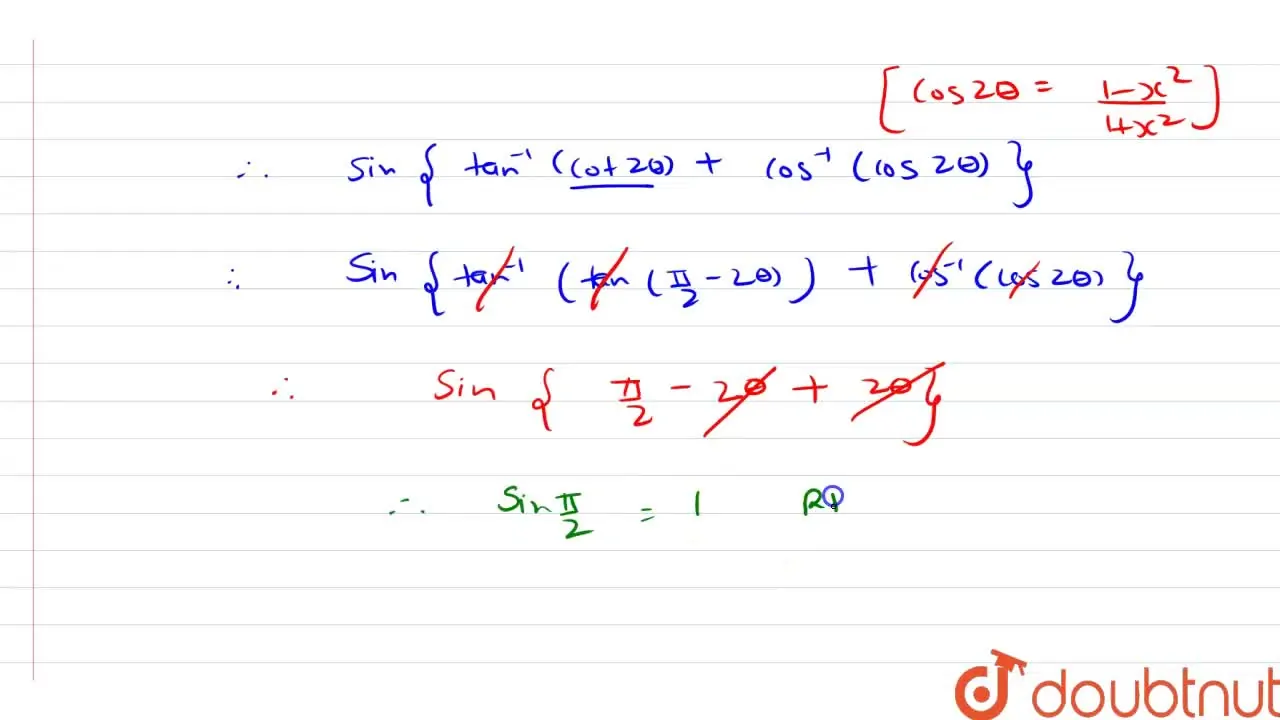 [cos2θ = 1-x²/4x²]
∴ Sin { tan⁻¹ (cot 2θ) + cos⁻¹ (cos 2θ) }
∴ Sin { tan⁻¹ (tan (π/2 - 2θ)) + cos⁻¹ (cos 2θ) }
∴ Sin { π/2 - 2θ + 2θ }
∴ Sin π/2 = 1
doubtnut